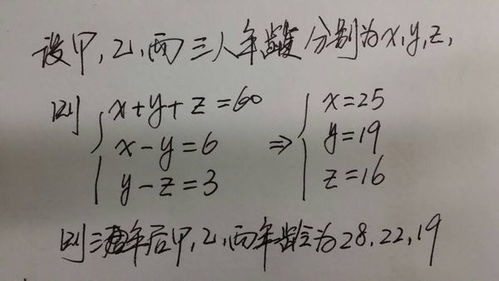 设甲,乙,丙三人年龄分别为x,y,z,
则 x+y+z=60 ⇒ x=25
x-y=6 y=19
y-z=3 z=16
则三年后甲,乙,丙年龄为28,22,19